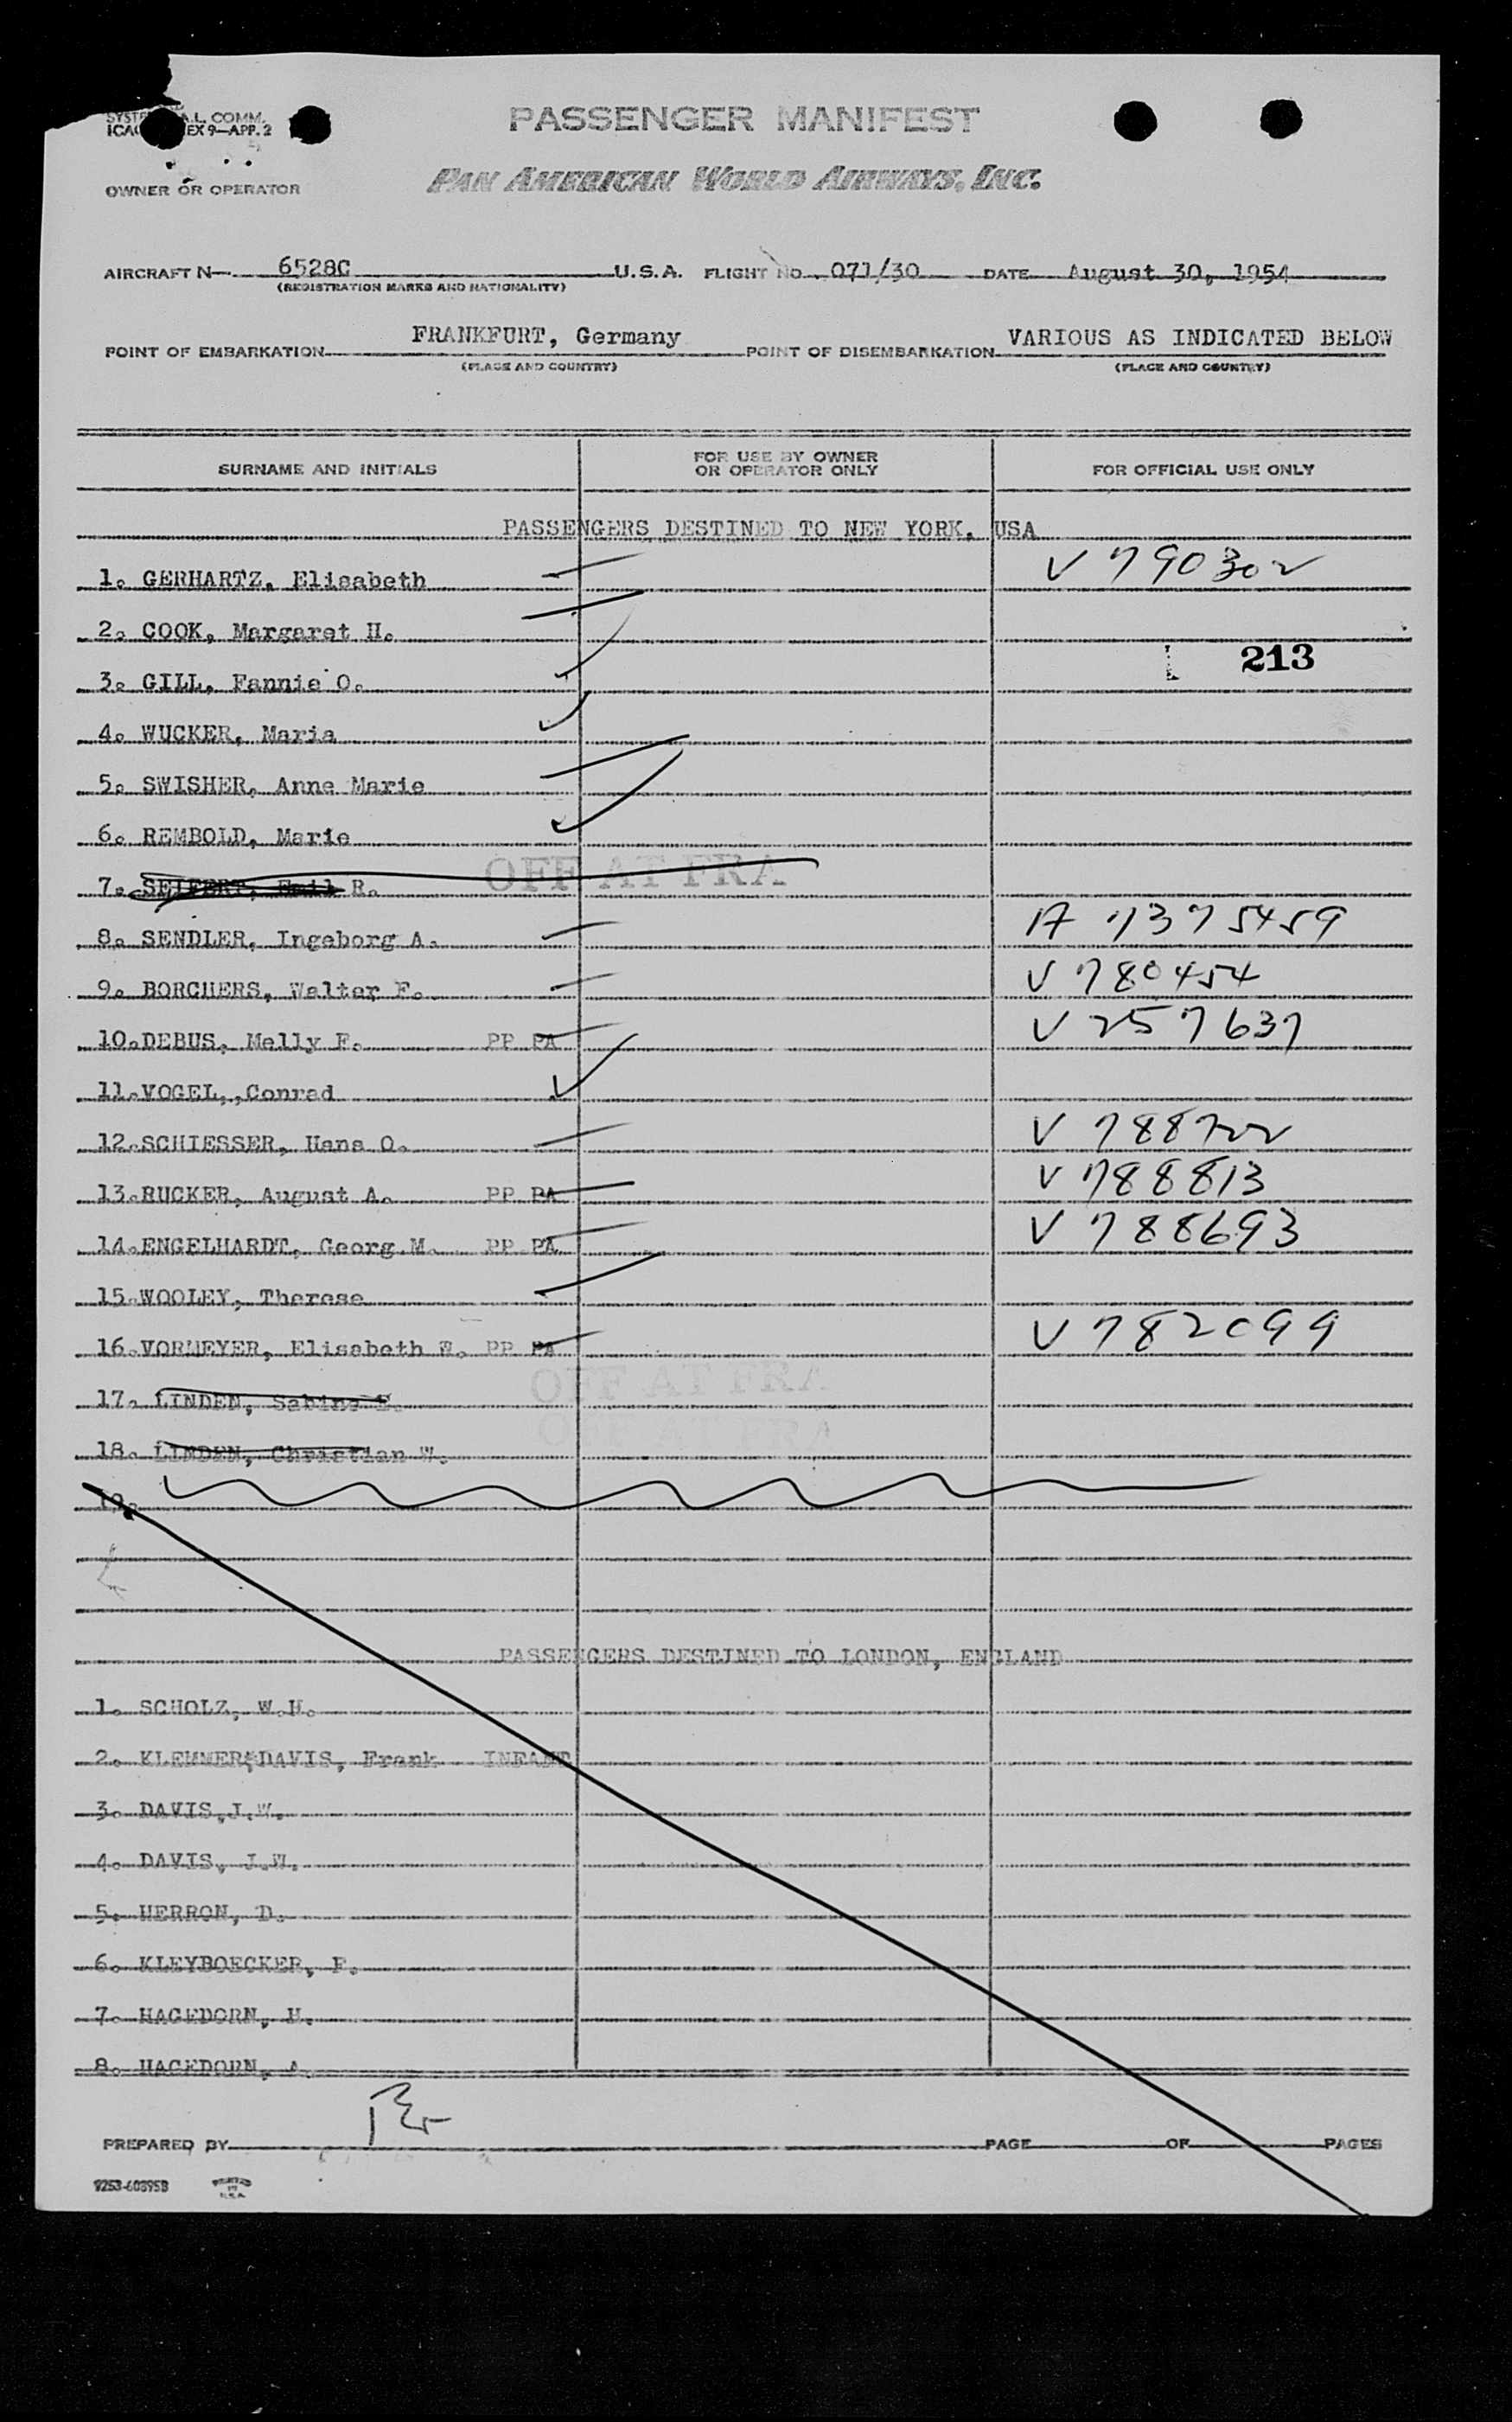 SYSTE A.L. COMM.
ICAO EX 9—APP. 2
PASSENGER MANIFEST
OWNER OR OPERATOR
PAN AMERICAN WORLD AIRWAYS, INC.
AIRCRAFT N— 6528C U.S.A. FLIGHT NO. 071/30 DATE August 30, 1954
(REGISTRATION MARKS AND NATIONALITY)
POINT OF EMBARKATION FRANKFURT, Germany POINT OF DISEMBARKATION VARIOUS AS INDICATED BELOW
(PLACE AND COUNTRY) (PLACE AND COUNTRY)
SURNAME AND INITIALS FOR USE BY OWNER OR OPERATOR ONLY FOR OFFICIAL USE ONLY
PASSENGERS DESTINED TO NEW YORK, USA
1. GERHARTZ, Elisabeth V 790302
2. COOK, Margaret H.
3. GILL, Fannie O. 213
4. WUCKER, Maria
5. SWISHER, Anne Marie
6. REMBOLD, Marie
7. SEIFERT, Emil R. OFF AT FRA
8. SENDLER, Ingeborg A. A 7375459
9. BORCHERS, Walter F. V 780454
10. DEBUS, Melly F. PP PA V 257637
11. VOGEL,,Conrad
12. SCHIESSER, Hans O. V 788722
13. RUCKER, August A. PP PA V 788813
14. ENGELHARDT, Georg M. PP PA V 788693
15. WOOLEY, Therese
16. VORMEYER, Elisabeth W. PP PA V 782099
17. LINDEN, Sabine E. OFF AT FRA
18. LINDEN, Christian W. OFF AT FRA
19.
PASSENGERS DESTINED TO LONDON, ENGLAND
1. SCHOLZ, W.H.
2. KLEMMER,DAVIS, Frank INFANT
3. DAVIS,J.W.
4. DAVIS, J.W.
5. HERRON, D.
6. KLEYBOECKER, F.
7. HAGEDORN, H.
8. HAGEDORN, A.
PREPARED BY PAGE OF PAGES
9253-60395B PRINTED IN U.S.A.